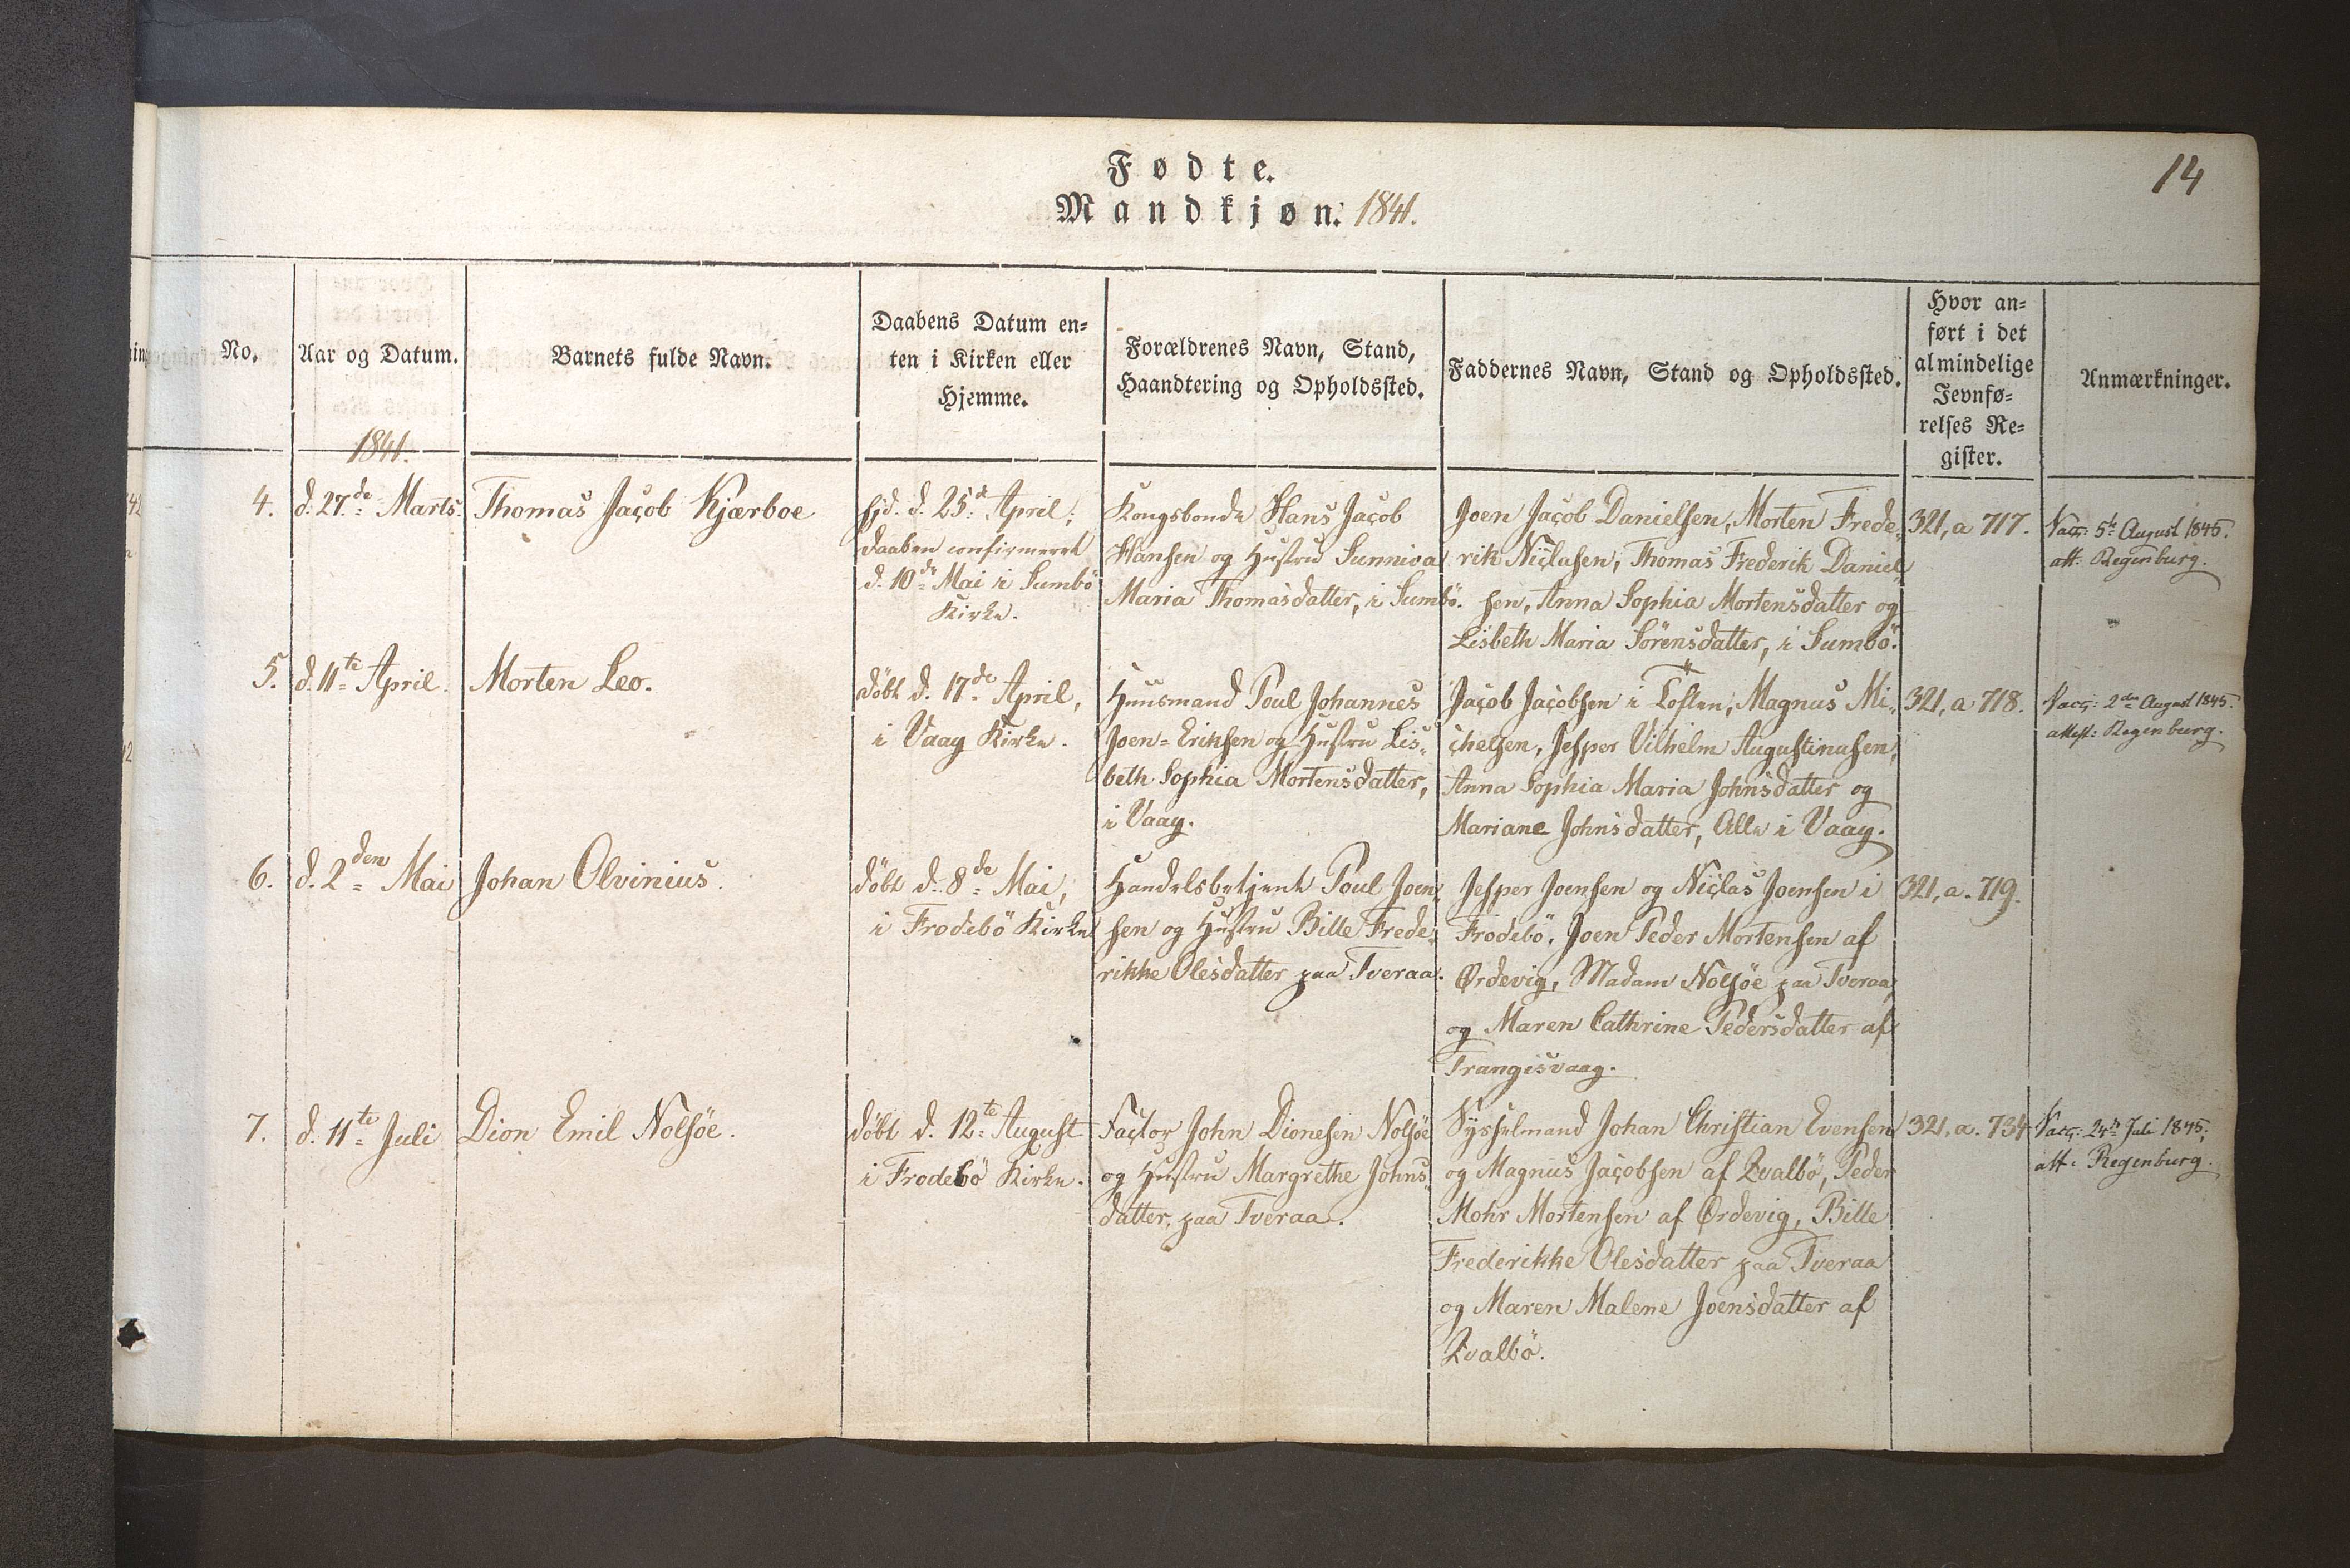 Fødte.
Mandkjøn. 1841.
14
No.
Aar og Datum.
Barnets fulde Navn.
Daabens Datum en=
ten i Kirken eller
Hjemme.
Forældrenes Navn, Stand,
Haandtering og Opholdssted.
Faddernes Navn, Stand og Opholdssted.
Hvor an=
ført i det
almindelige
Jevnfø=
relses Re=
gister.
Anmærkninger.
1841.
4.
d. 27de Marts.
Thomas Jacob Kjærboe
hjd. d. 25d April;
Daaben confirmeret
d. 10de Mai i Sumbö
Kirke.
Kongsbonde Hans Jacob
Hansen og Hustru Sunniva
Maria Thomasdatter, i Sumbö.
Joen Jacob Danielsen, Morten Frede„
rik Niclasen, Thomas Frederik Daniel„
sen, Anna Sophia Mortensdatter og
Lisbeth Maria Sörensdatter, i Sumbö.
321, a 717.
Vacc: 5te August 1845.
att: Regenburg.
5.
d. 11te April.
Morten Leo.
döbt d. 17de April,
i Vaag Kirke.
Huusmand Poul Johannes
Joen=Eriksen og Hustru Lis„
beth Sophia Mortensdatter,
i Vaag.
Jacob Jacobsen i Toften, Magnus Mi„
chelsen, Jesper Vilhelm Augustinusen,
Anna Sophia Maria Johnsdatter og
Mariane Johnsdatter, Alle i Vaag.
321, a 718.
Vacc: 2den August 1845.
attest: Regenburg.
6.
d. 2den Mai
Johan Olvinius.
döbt d. 8de Mai,
i Frodebö Kirke
Handelsbetjent Poul Joen„
sen og Hustru Bille Frede„
rikke Olesdatter paa Tveraa.
Jesper Joensen og Niclas Joensen i
Frodebö, Joen Peder Mortensen af
Ørdevig, Madam Nolsöe paa Tveraa,
og Maren Cathrine Pedersdatter af
Trangisvaag.
321, a. 719.
7.
d. 11te Juli
Dion Emil Nolsöe.
döbt d. 12te August
i Frodebö Kirke.
Factor John Dionesen Nolsöe
og Hustru Margrethe Johns„
datter, paa Tveraa.
Sysselmand Johan Christian Evensen
og Magnus Jacobsen af Qvalbö, Peder
Mohr Mortensen af Ørdevig, Bille
Frederikke Olesdatter paa Tveraa
og Maren Malene Joensdatter af
Qvalbö.
321. a. 734
Vacc: 24de Juli 1845;
att: Regenburg.